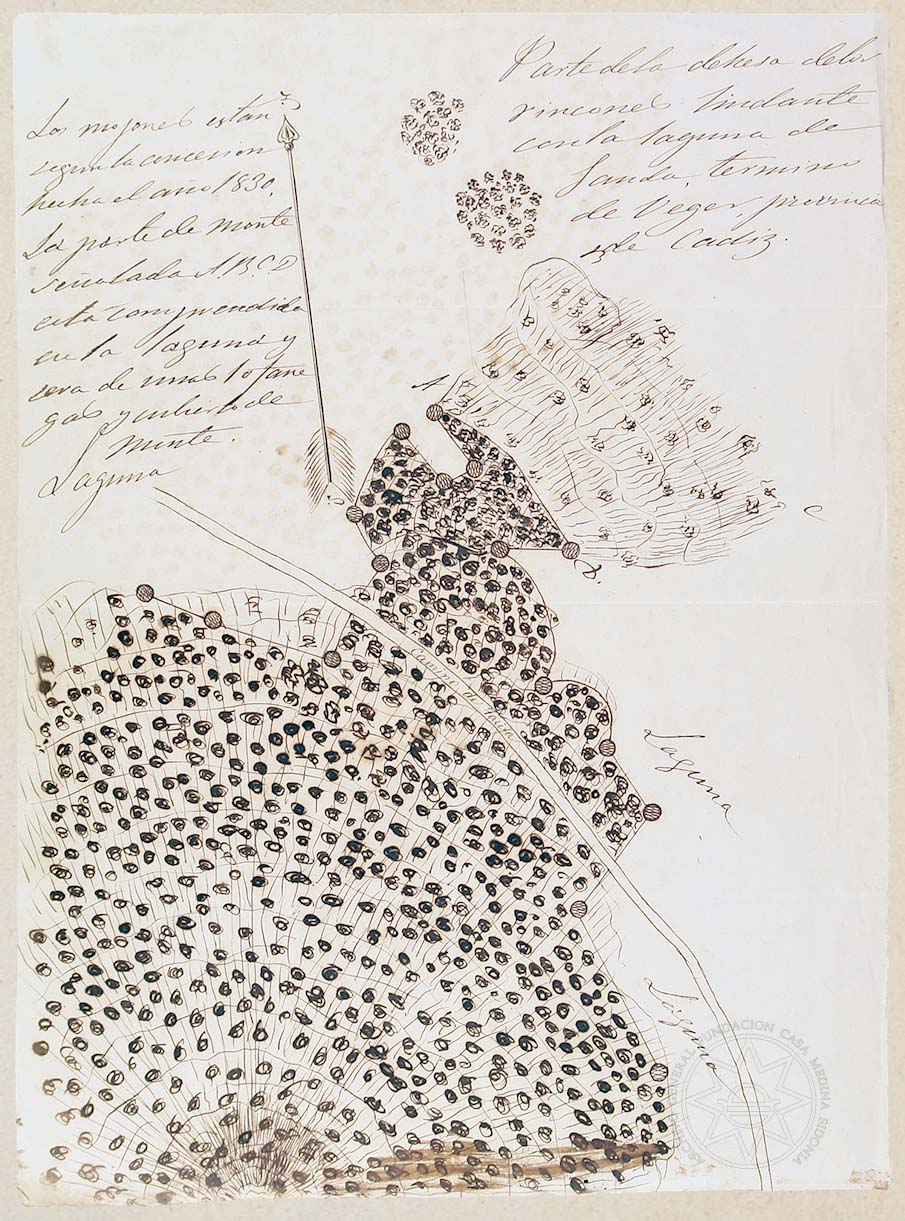 Parte de la dehesa de los
rincones lindante
con la laguna de
Janda, termino
de Veger, provincia
de Cadiz.
Los mojones estan
segun la concesion
hecha el año 1830.
La parte de monte
señalada A.B.C.D
esta comprendida
en la laguna y
sera de unas 10 fane
gas y cubierto de
monte.
Laguna
A
C
Camino de
Laguna
Laguna
ARCHIVO GENERAL FUNDACION CASA MEDINA SIDONIA